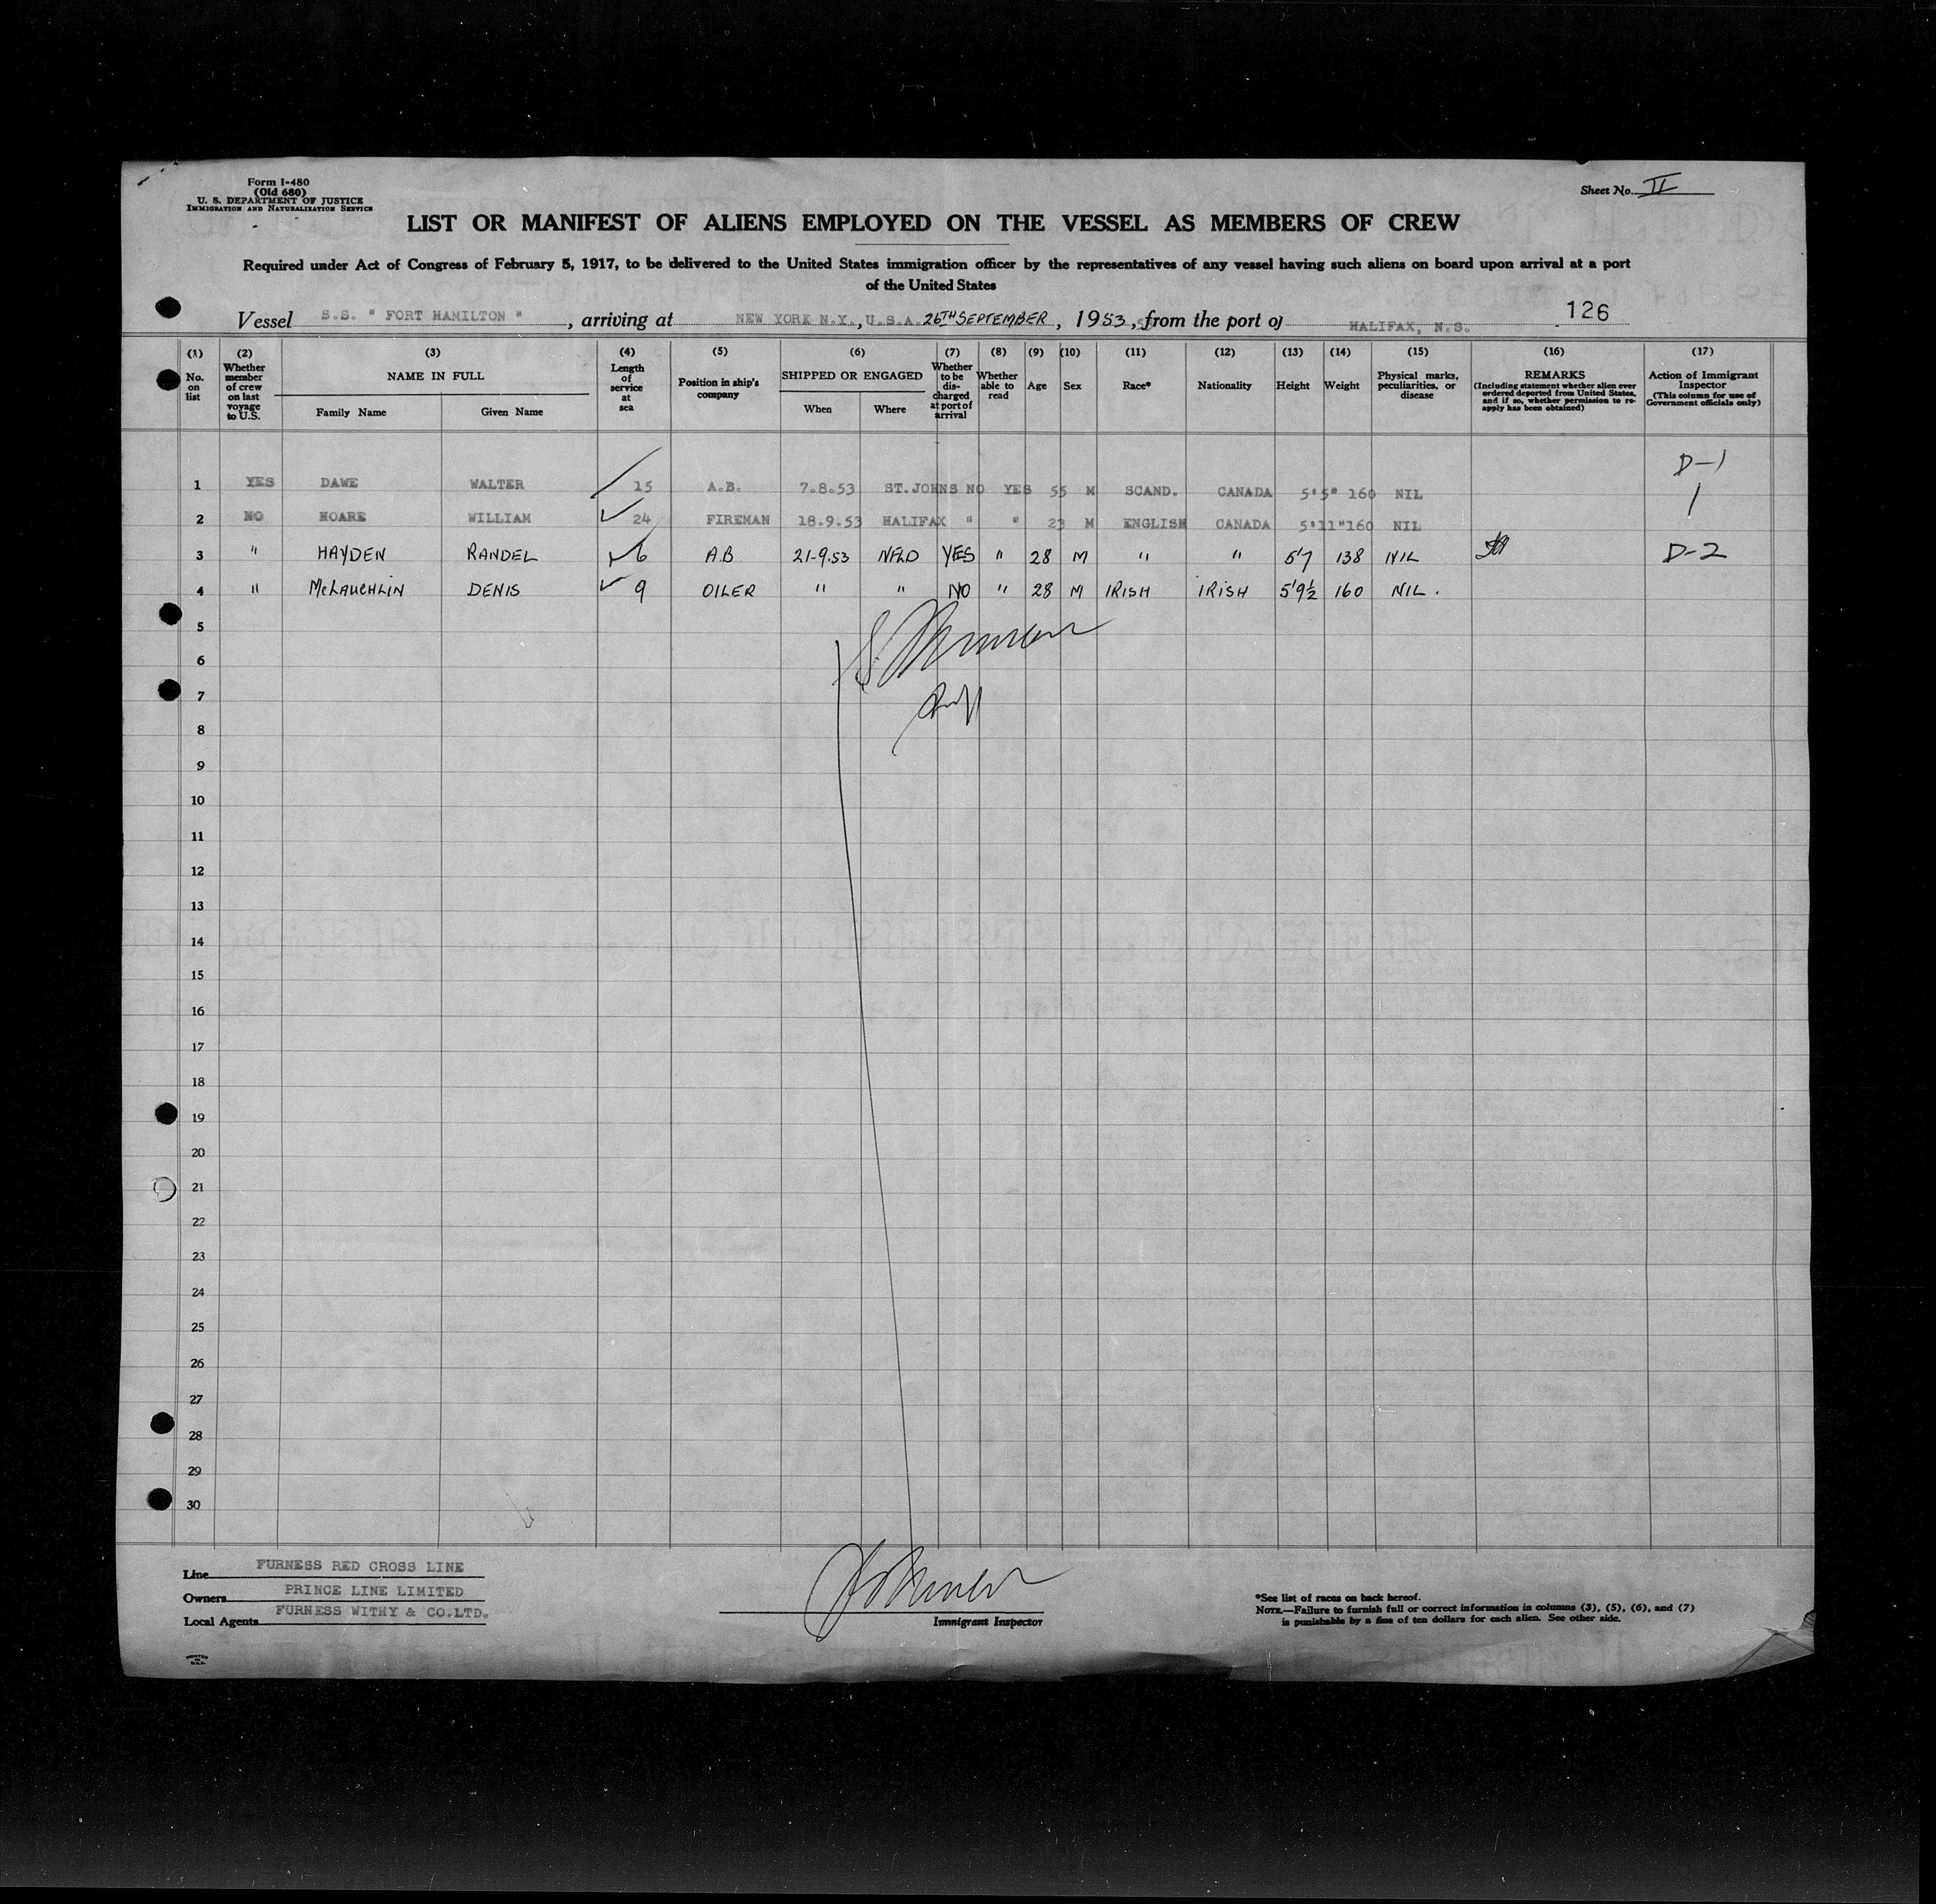 Form I-480
(Old 680)
U. S. DEPARTMENT OF JUSTICE
IMMIGRATION AND NATURALIZATION SERVICE
Sheet No. II
LIST OR MANIFEST OF ALIENS EMPLOYED ON THE VESSEL AS MEMBERS OF CREW
Required under Act of Congress of February 5, 1917, to be delivered to the United States immigration officer by the representatives of any vessel having such aliens on board upon arrival at a port
of the United States
126
Vessel S.S. " FORT HAMILTON ", arriving at NEW YORK N.Y., U.S.A. 26TH SEPTEMBER, 1953, from the port of HALIFAX, N.S.
(1) (2) (3) (4) (5) (6) (7) (8) (9) (10) (11) (12) (13) (14) (15) (16) (17)
No. on list
Whether member of crew on last voyage to U.S.
NAME IN FULL
Family Name Given Name
Length of service at sea
Position in ship's company
SHIPPED OR ENGAGED
When Where
Whether to be discharged at port of arrival
Whether able to read
Age
Sex
Race*
Nationality
Height
Weight
Physical marks, peculiarities, or disease
REMARKS
(Including statement whether alien ever ordered deported from United States, and if so, whether permission to re-apply has been obtained)
Action of Immigrant Inspector
(This column for use of Government officials only)
D-1
1 YES DAWE WALTER 15 A.B. 7.8.53 ST.JOHNS NO YES 55 M SCAND. CANADA 5'5" 160 NIL
2 NO HOARE WILLIAM 24 FIREMAN 18.9.53 HALIFAX " " 23 M ENGLISH CANADA 5'11" 160 NIL
3 " HAYDEN RANDEL 6 A.B 21-9.53 NFLD YES " 28 M " " 5'7 138 NIL D-2
4 " McLAUCHLIN DENIS 9 OILER " " NO " 28 M IRISH IRISH 5'9½ 160 NIL.
5
6
7
8
9
10
11
12
13
14
15
16
17
18
19
20
21
22
23
24
25
26
27
28
29
30
Line FURNESS RED CROSS LINE
Owners PRINCE LINE LIMITED
Local Agents FURNESS WITHY & CO.LTD.
Immigrant Inspector
*See list of races on back hereof.
NOTE.—Failure to furnish full or correct information in columns (3), (5), (6), and (7)
is punishable by a fine of ten dollars for each alien. See other side.
PRINTED IN U.S.A.